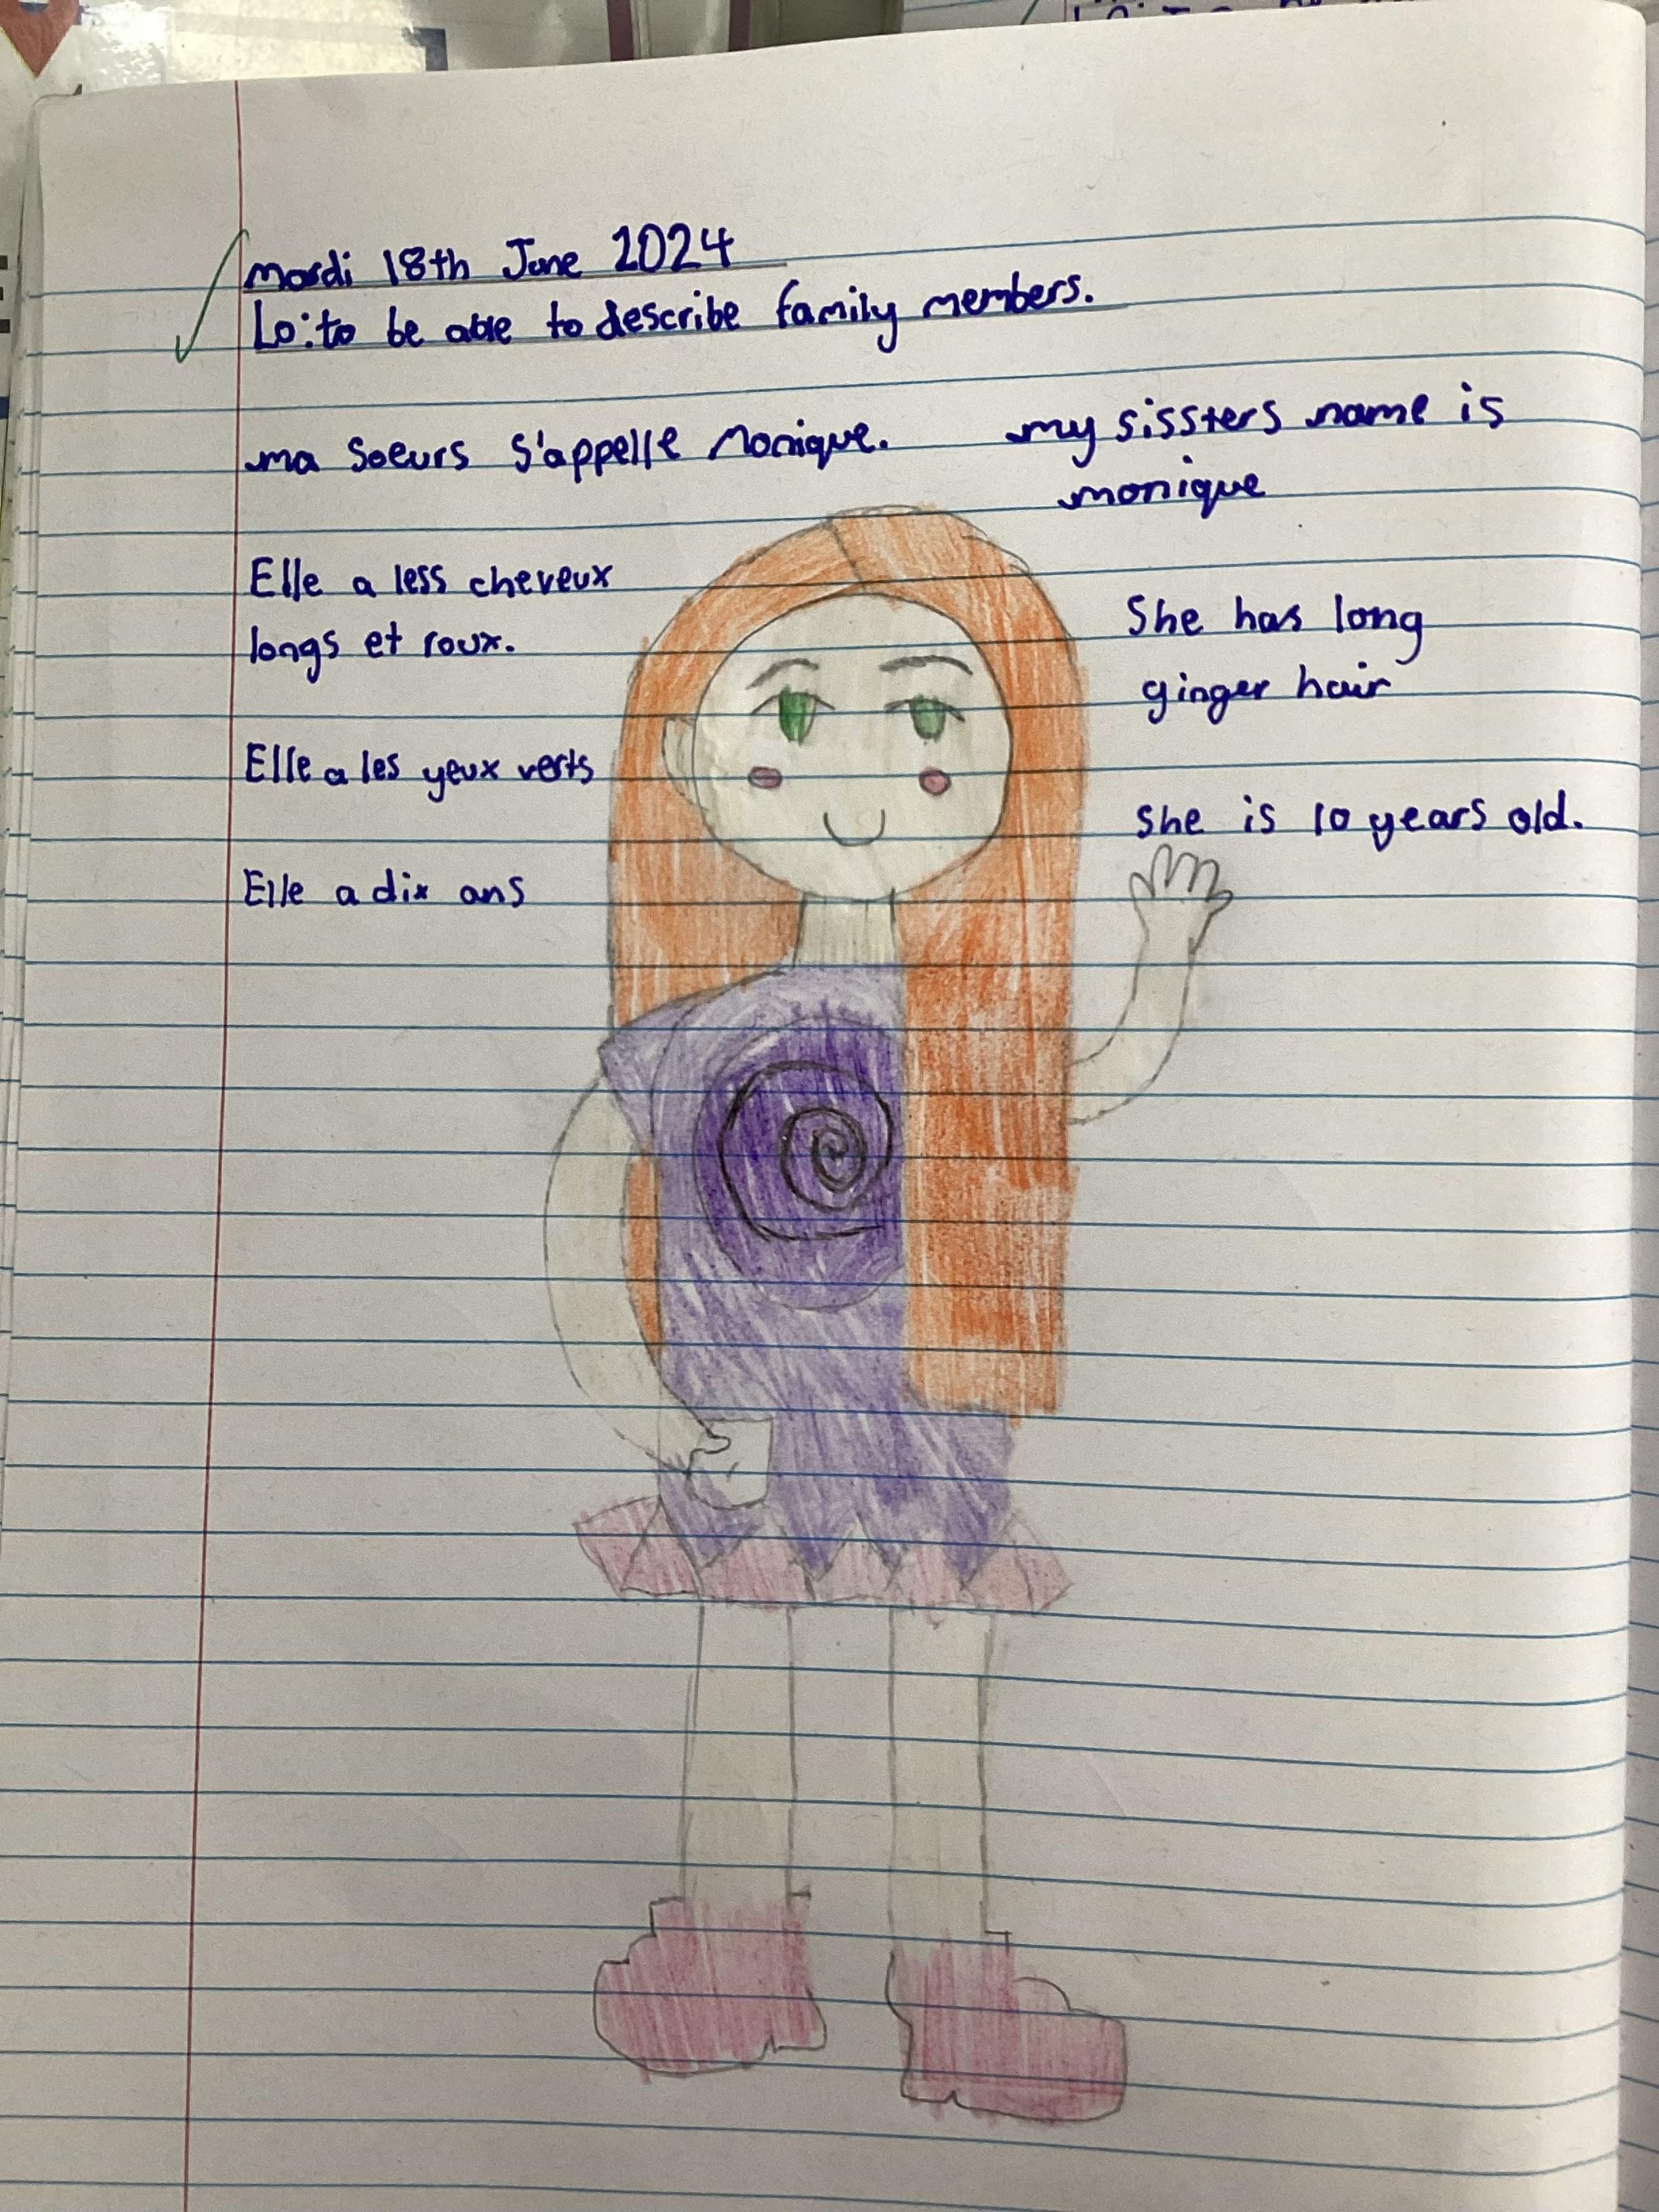 mardi 18th June 2024
Lo: to be able to describe family members.
ma soeurs s'appelle Monique.
my sissters name is
monique
Elle a less cheveux
longs et roux.
She has long
ginger hair
Elle a les yeux verts
she is 10 years old.
Elle a dix ans